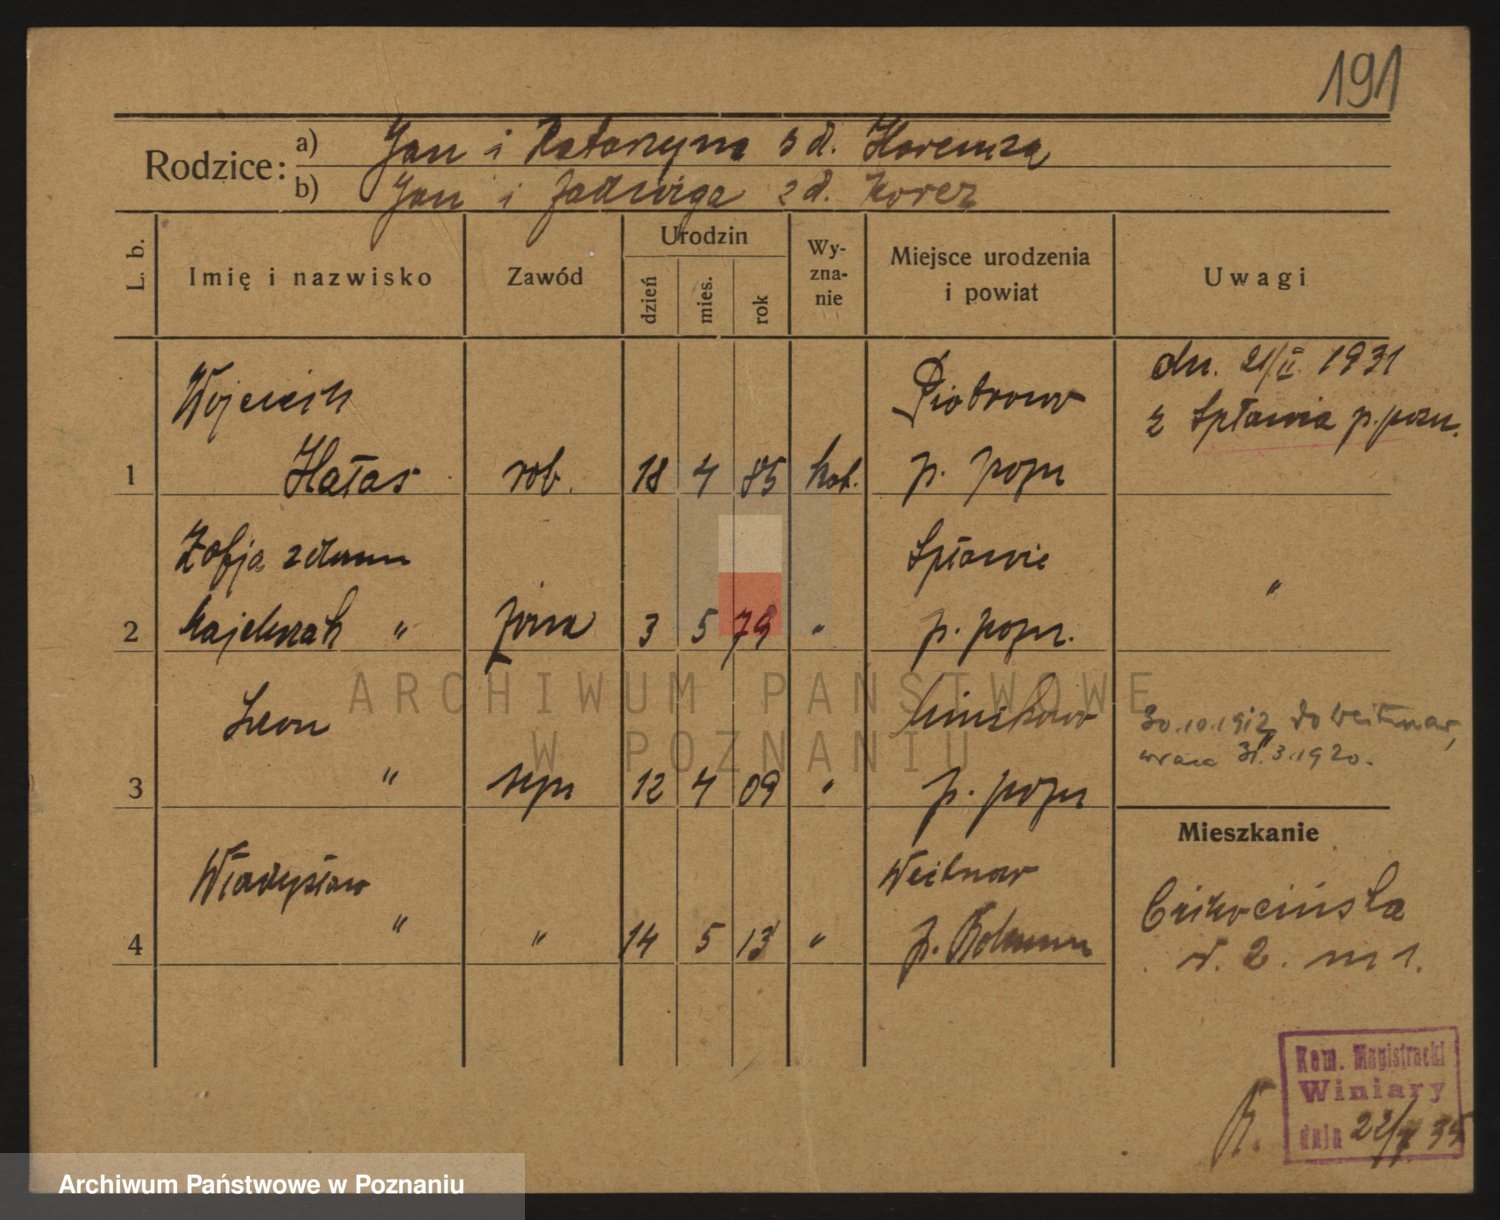 191
Rodzice: a) Jan i Katarzyna z d.
b) Jan i Jadwiga z d. Korcz
L. b.
Imię i nazwisko
Zawód
Urodzin
dzień
mies.
rok
Wy-
zna-
nie
Miejsce urodzenia
i powiat
Uwagi
Wojciech
Piotrowo
dn. 21/II. 1931
z Spławia p. pozn.
1 Hałas rob. 18 4 85 kat. p. pozn
Zofja z domu
Spławie
"
2 Majchrzak " żona 3 5 79 " p. pozn.
Leon
30.10.1912 do Weitmar,
wraca 31.3.1920.
3 " syn 12 4 09 " p. pozn
Mieszkanie
Władysław
Weitmar
4 " " 14 5 13 " p. Bochum
N. 2. m 1.
Kom. Magistracki
Winiary
dnia 22/ 35
R.
ARCHIWUM PAŃSTWOWE
W POZNANIU
Archiwum Państwowe w Poznaniu